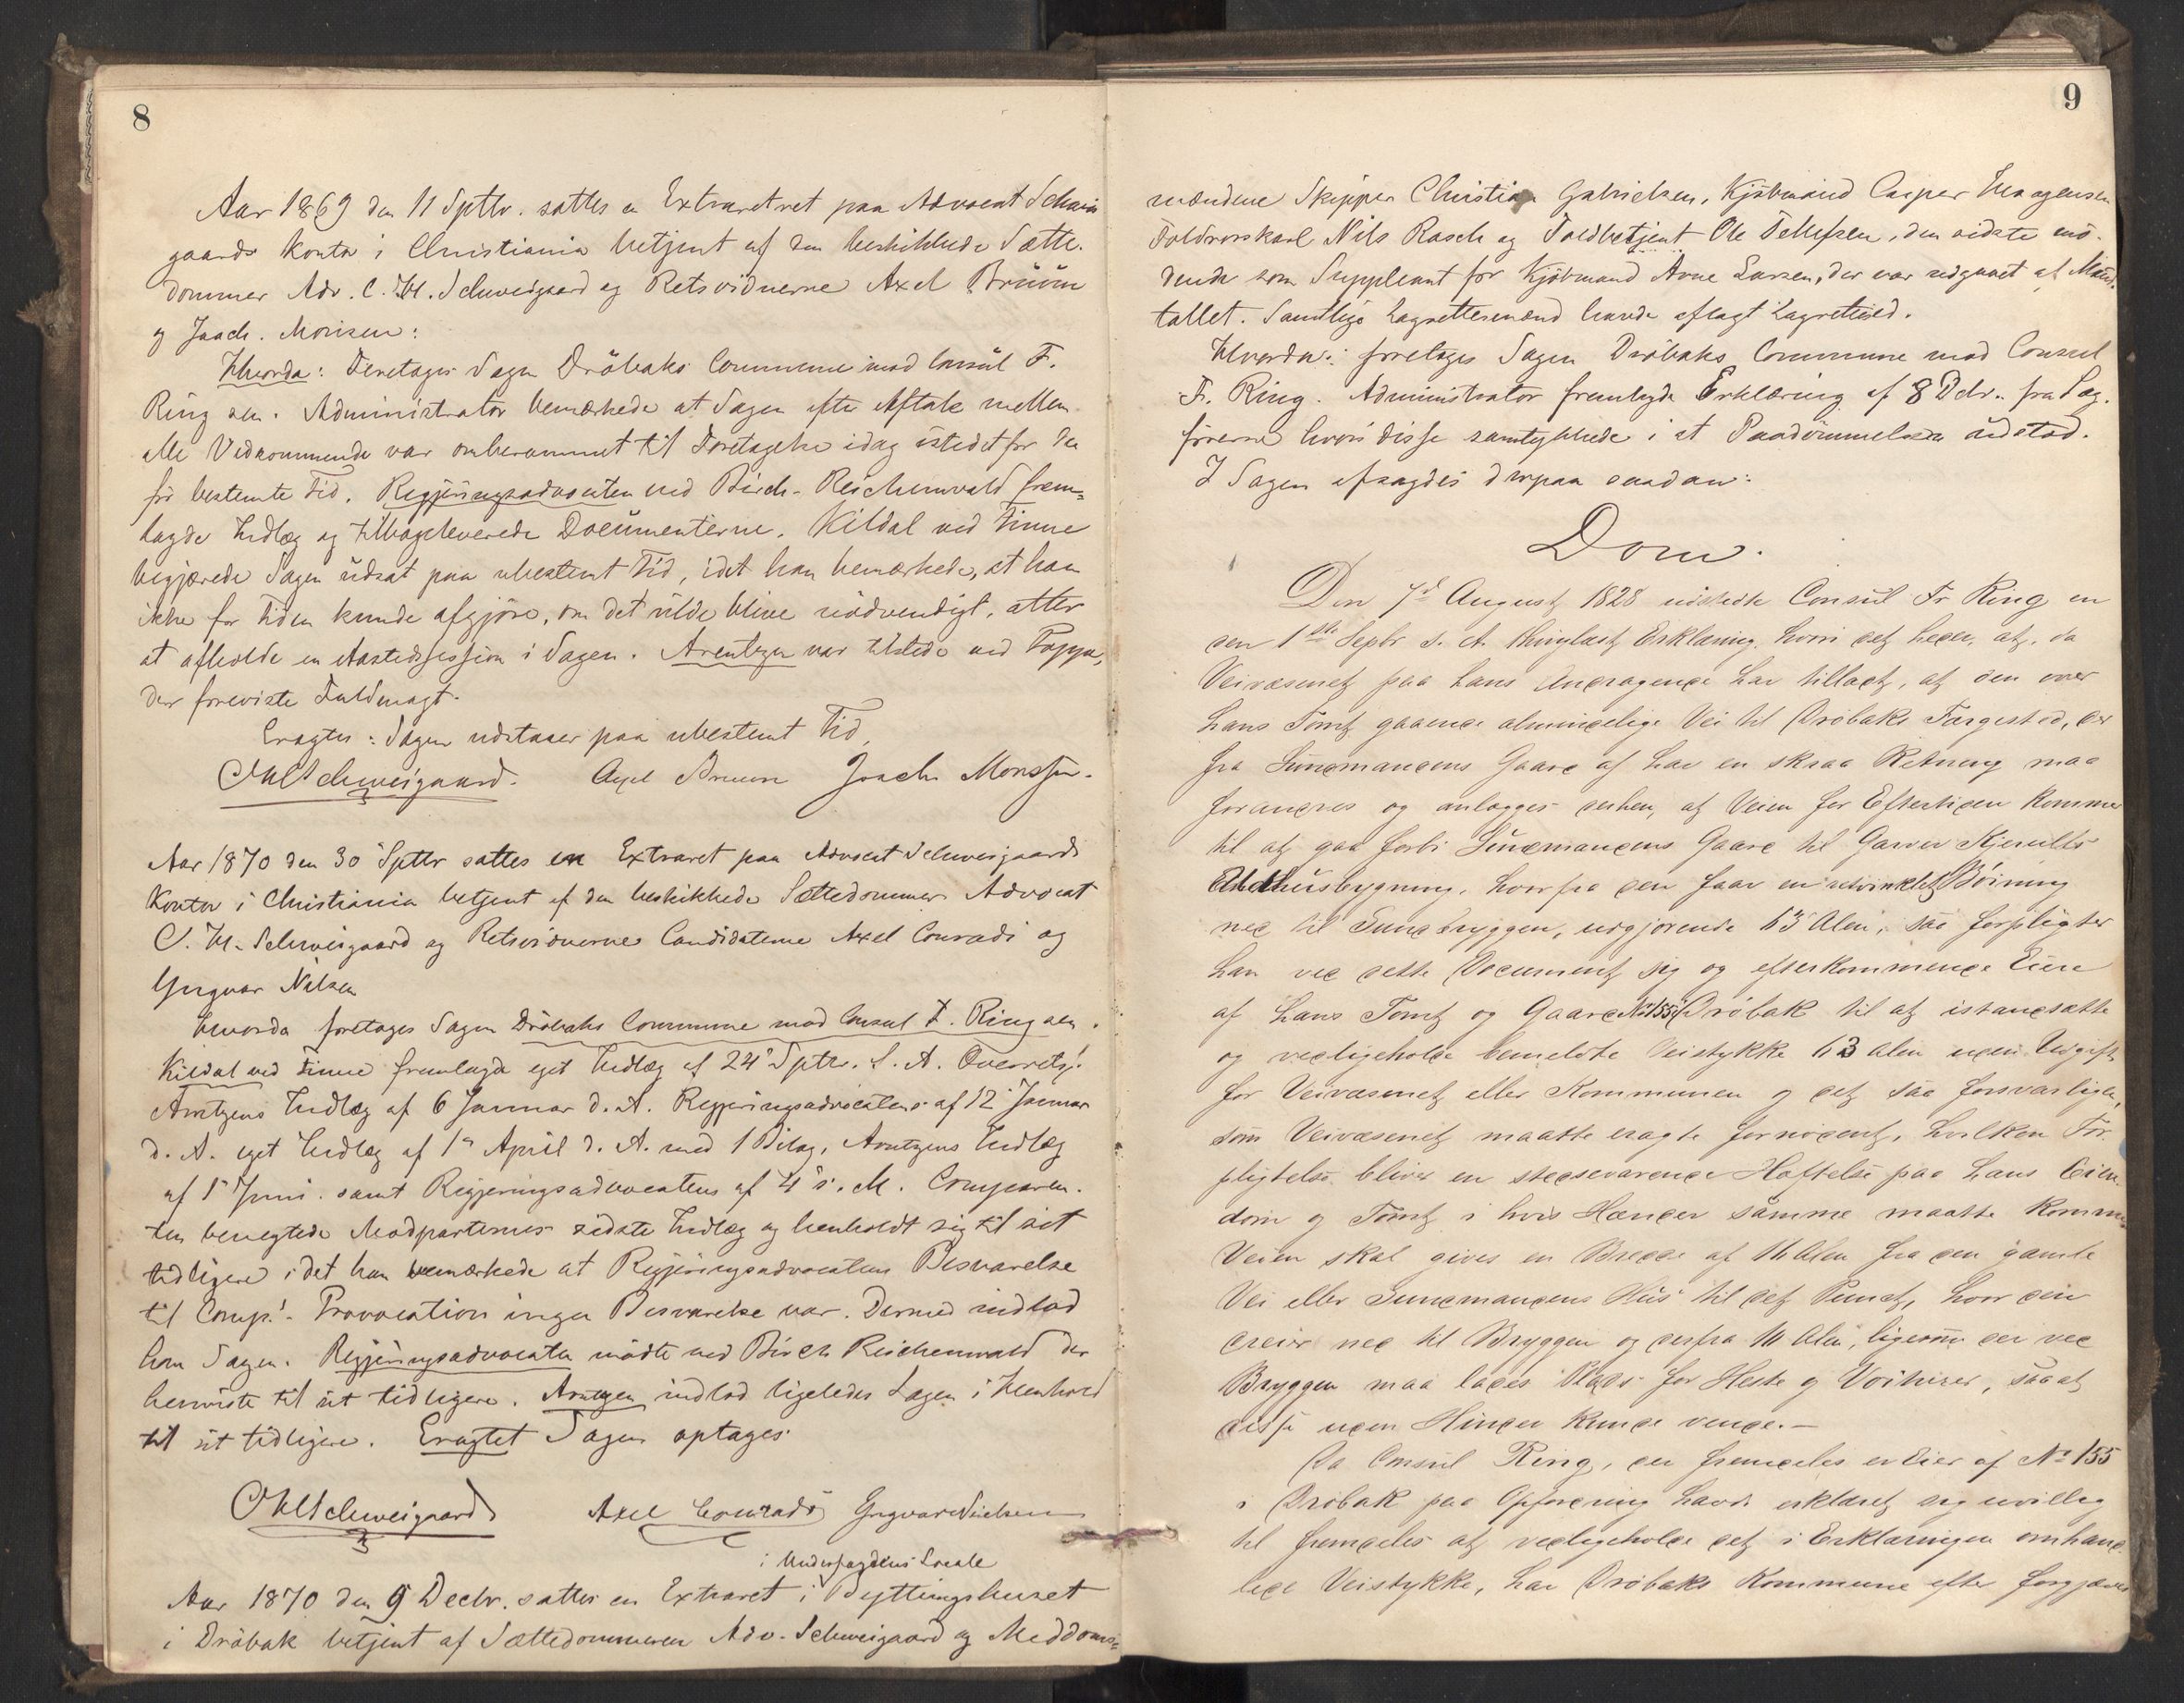 8
Aar 1869 den 11 Septbr. sattes en Extraretret paa Advocat Schwei
gaards Kontor i Christiania betjent af den beskikkede Sætte-
dommer Adv. C. H. Schweigaard og Retsvidnerne Axel Bruun
og Joach. Monsen:
Hvorda: Foretages Sagen Dröbaks Commune mod Consul F.
Ring sen. Administrator bemærkede at Sagen efter Aftale mellem
alle Vedkommende var omberammet til Foretagelse idag istedetfor den
för bestemte Tid. Regjeringsadvocaten ved Birch-Reichenwald frem-
lagde Indlæg og tilbageleverede Documenterne. Kildal ved Finne
begjærede Sagen udsat paa ubestemt Tid, idet han bemærkede, at han
ikke for Tiden kunde afgjöre, om det vilde blive nödvendigt, atter
at afholde en Aastedssession i Sagen. Arentzen var tilstede ved Poppe,
der foreviste Fuldmagt.
Eragtes: Sagen udstaaer paa ubestemt Tid,
CHSchweigaard. Axel Bruun Joach Monssen.
Aar 1870 den 30 Septbr sattes en Extraret paa Advocat Schweigaards
Kontor i Christiania betjent af den beskikkede Sættedommer Advocat
C. H. Schweigaard og Retsvidnerne Candidaterne Axel Conradi og
Yngvar Nielsen
Hvorda foretages Sagen Dröbaks Commune mod Consul F. Ring sen.
Kildal ved Finne fremlagde eget Indlæg af 24 Septbr. f. A. Overretss.
Arntzens Indlæg af 6 Januar d. A. Regjeringsadvocatens af 12 Januar
d. A. eget Indlæg af 1 April d. A. med 1 Bilag, Arntzens Indlæg
af 1 Juni samt Regjeringsadvocatens af 4 s. M. Comparen-
ten benegtede Modparternes sidste Indlæg og henholdt sig til sit
tidligere idet han bemærkede at Regjeringsadvocatens Besvarelse
til Comp. Provocation ingen Besvarelse var. Dermed indlod
han Sagen. Regjeringsadvocaten mödte ved Birch Reichenwald der
henviste til sit tidligere. Arntzen indlod ligeledes Sagen i Henhold
til sit tidligere. Eragtet Sagen optages
CHSchweigaard Axel Conradi Yngvar Nielsen
i Underfogdens Locale
Aar 1870 den 9 Decbr. sattes en Extraret i Byttingshuset
i Dröbak betjent af Sættedommeren Adv. Schweigaard og Meddoms-
9
mændene Skipper Christian Gabrielsen, Kjöbmand Casper Haagensen
Toldrorskarl Nils Rasch og Toldbetjent Ole Tellefsen, den sidste mö-
dende som Suppleant for Kjöbmand Arne Larsen, der var udgaaet af Mand-
tallet. Samtlige Lagrettesmænd havde aflagt Lagretteed.
Hvorda: foretages Sagen Dröbaks Commune mod Consul
F. Ring. Administrator fremlagde Erklæring af 8 Dcbr. fra Sag-
förerne hvori disse samtykkede i at Paadömmelsen udstod.
I Sagen afsagdes derpaa saadan:
Dom.
Den 7d August 1828 udstedte Consul Fr Ring en
den 1ste Septbr s. A. thinglæst Erklæring, hvori det heder, at, da
Veivæsenet paa hans Andragende har tilladt, at den over
hans Tomt gaaende almindelige Vei til Dröbaks Færgested, der
fra Sundmandens Gaard af har en skraa Retning maa
forandres og anlægges derhen, at Veien for Eftertiden kommer
til at gaa forbi Sundmandens Gaard til Garver Kjerulfs
Udhusbygning, hvorfra den faar en retvinklet Böining
ned til Sundbryggen, udgjörende 63 Alen, saa forpligter
han ved dette Document sig og efterkommende Eiere
af hans Tomt og Gaard No 155 i Dröbak til at istandsætte
og vedligeholde bemeldte Veistykke 63 Alen uden Udgift
for Veivæsenet eller Kommunen og det saa forsvarligen,
som Veivæsenet maatte eragte fornödent, hvilken For-
pligtelse bliver en stedsevarende Hæftelse paa hans Eien-
dom og Tomt i hvis Hænder samme maatte komme
Veien skal gives en Bredde af 16 Alen fra den gamle
Vei eller Sundmandens Hus til det Punct, hvor den
dreier ned til Bryggen og derfra 10 Alen, ligesom der ved
Bryggen maa lades Plads for Heste og Voituirer, saa at
disse uden Hinder kunde vende.—
Da Consul Ring, der fremdeles er Eier af No 155
i Dröbak paa Opfordring havde erklæret sig uvillig
til fremdeles at vedligeholde det i Erklæringen omhand-
lede Veistykke, har Dröbaks Kommune efter forgjæves